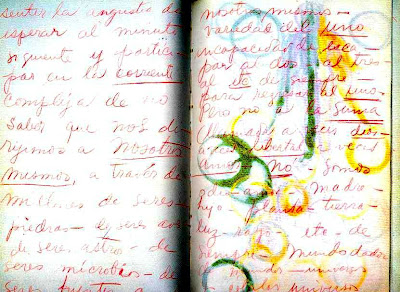 sentir la angustia de
esperar al minuto
siguiente y partici-
par en la corriente
compleja de no
saber que nos di-
rijimos a nosotros
mismos, a través de
millones de seres
piedras – de seres aves
de seres astros – de
seres microbios – de
seres fuentes a
nosotros mismos –
variedad del uno
incapacidad de esca-
par al dos – al tres
al etc de siempre –
para regresar al uno.
Pero no a la suma
llamada a veces dios –
a veces libertad a veces
amor – No – somos
odio – amor – madre –
hijo – planta – tierra –
luz – rayo – etc – de
siempre – mundo dador
de mundos – universos
y células universos